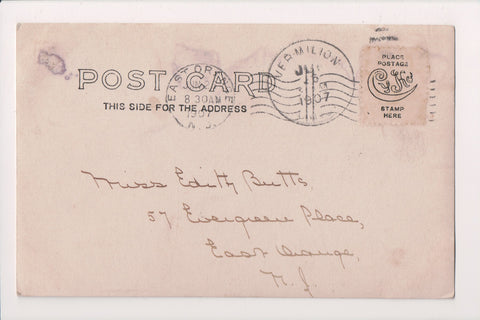 POST CARD
THIS SIDE FOR THE ADDRESS
EAST OR
8.30AM
1907
N.J.
VERMILION
1907
PLACE
POSTAGE
STAMP
HERE
Miss Edith Butts
57 Evergreen Place,
East Orange,
N.J.